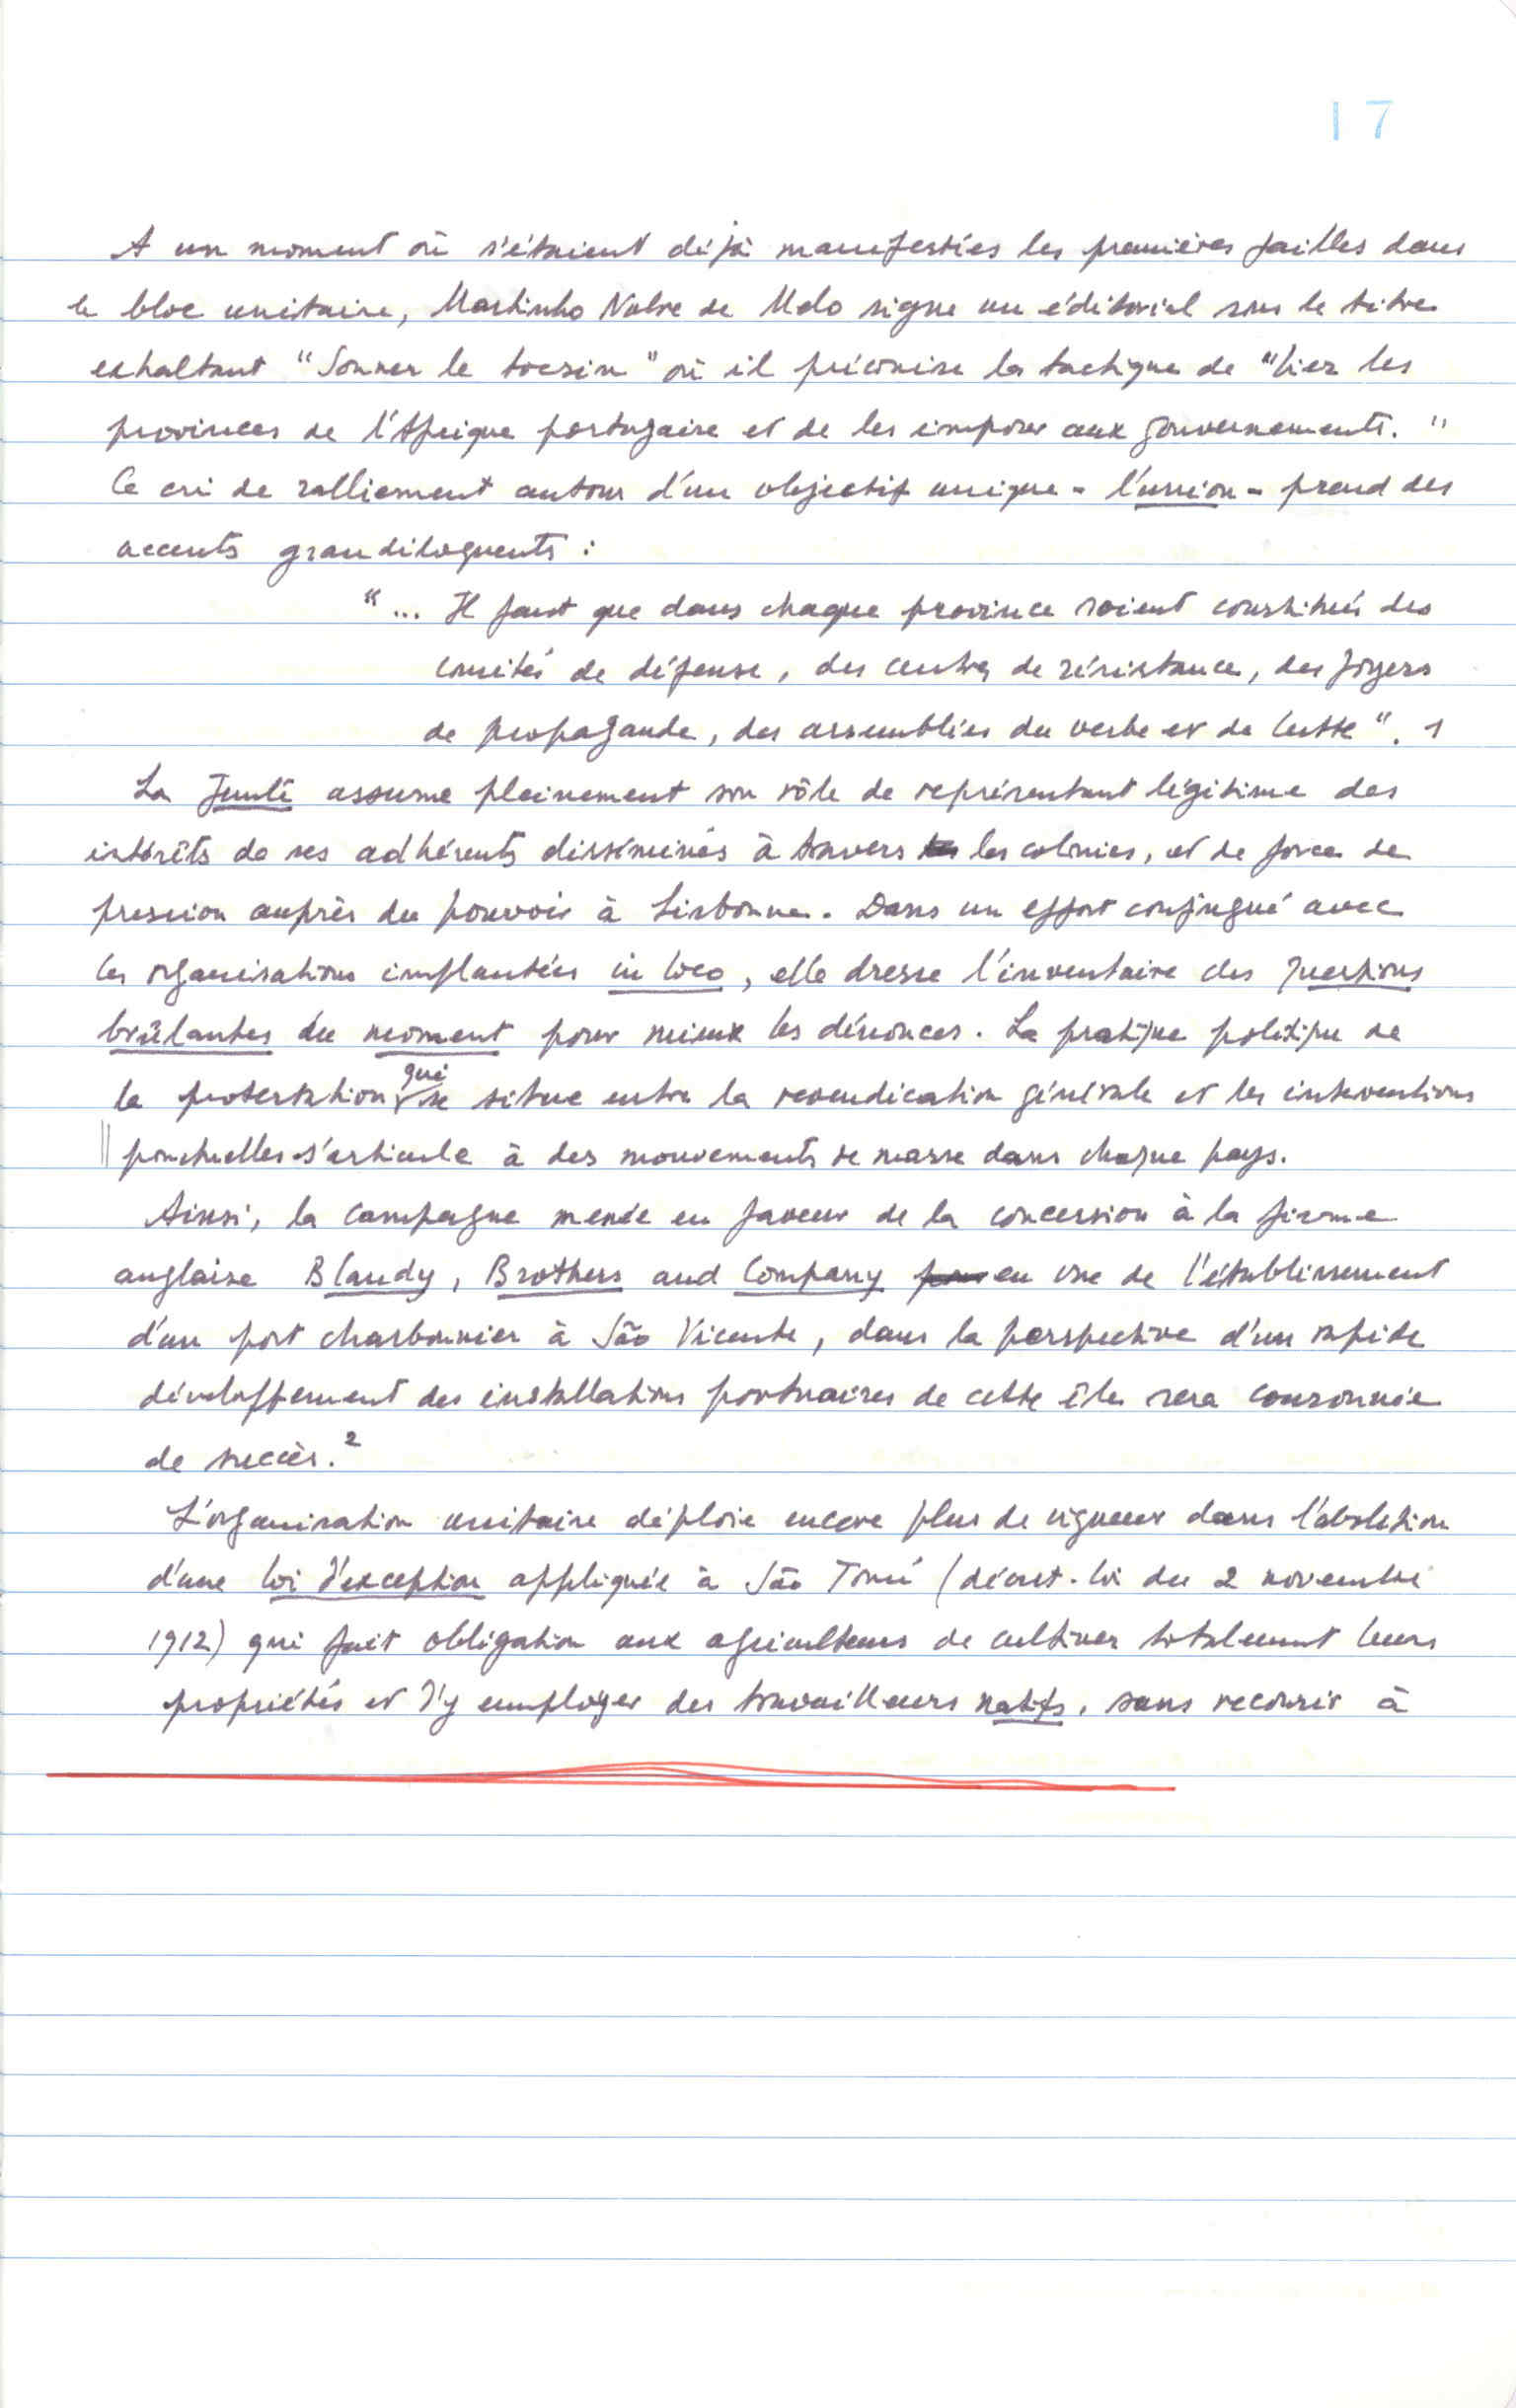 17
A un moment où s'étaient déjà manifestées les premières failles dans
le bloc unitaire, Martinho Nobre de Melo signe un éditorial sous le titre
exhaltant "Sonner le tocsin" où il préconise la tactique de "lier les
provinces de l'Afrique portugaise et de les imposer aux gouvernements."
Ce cri de ralliement autour d'un objectif unique - l'union - prend des
accents grandiloquents :
"... Il faut que dans chaque province soient constitués des
comités de défense, des centres de résistance, des foyers
de propagande, des assemblées du verbe et de lutte". 1
La Junte assume pleinement son rôle de représentant légitime des
intérêts de ses adhérents disséminés à travers les colonies, et de force de
pression auprès du pouvoir à Lisbonne. Dans un effort conjugué avec
les organisations implantées in loco, elle dresse l'inventaire des questions
brûlantes du moment pour mieux les dénoncer. La pratique politique de
la protestation qui se situe entre la revendication générale et les interventions
ponctuelles s'articule à des mouvements de masse dans chaque pays.
Ainsi, la campagne menée en faveur de la concession à la firme
anglaise Blandy, Brothers and Company en vue de l'établissement
d'un port charbonnier à São Vicente, dans la perspective d'un rapide
développement des installations portuaires de cette île sera couronnée
de succès. 2
L'organisation unitaire déploie encore plus de vigueur dans l'abolition
d'une loi d'exception appliquée à São Tomé (décret-loi du 2 novembre
1912) qui fait obligation aux agriculteurs de cultiver totalement leurs
propriétés et d'y employer des travailleurs natifs, sans recourir à